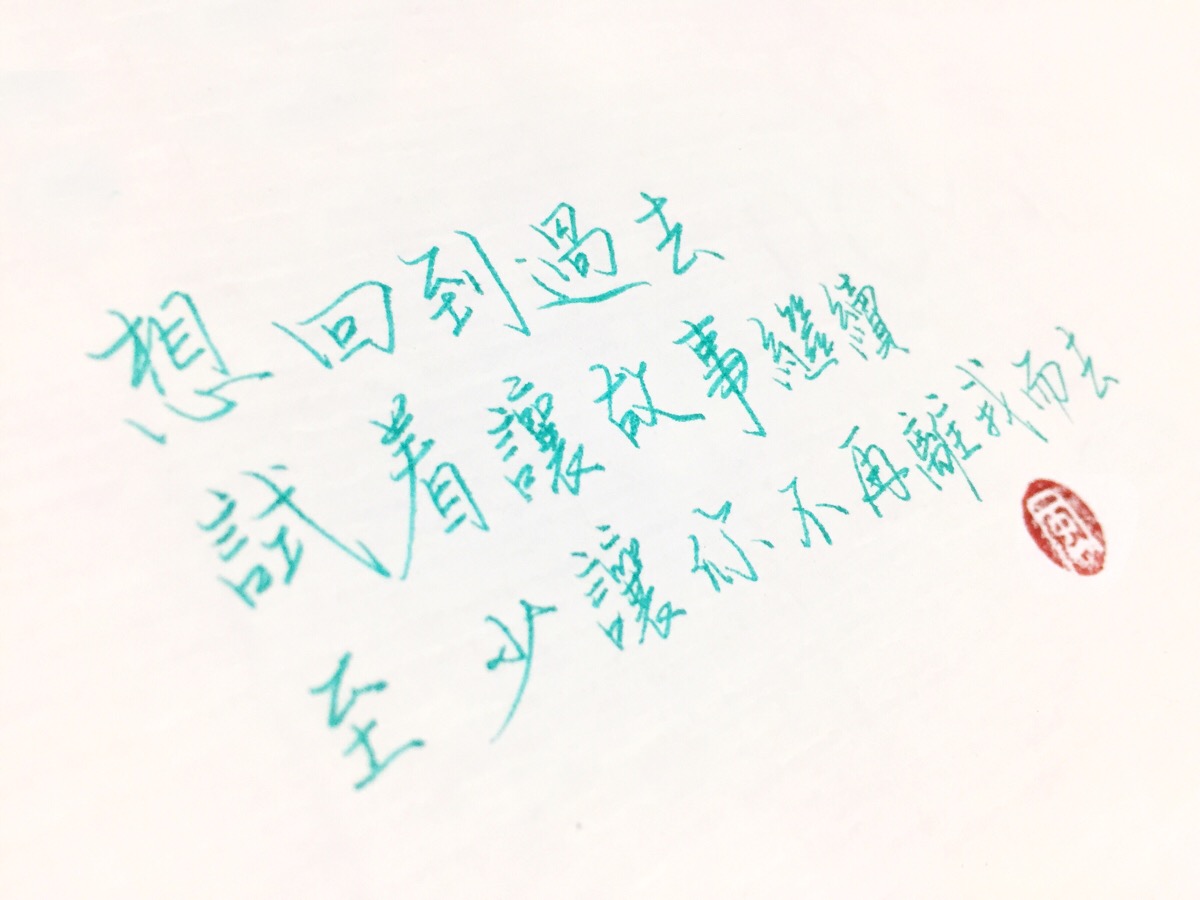 想回到過去
試着讓故事繼續
至少讓你不再離我而去